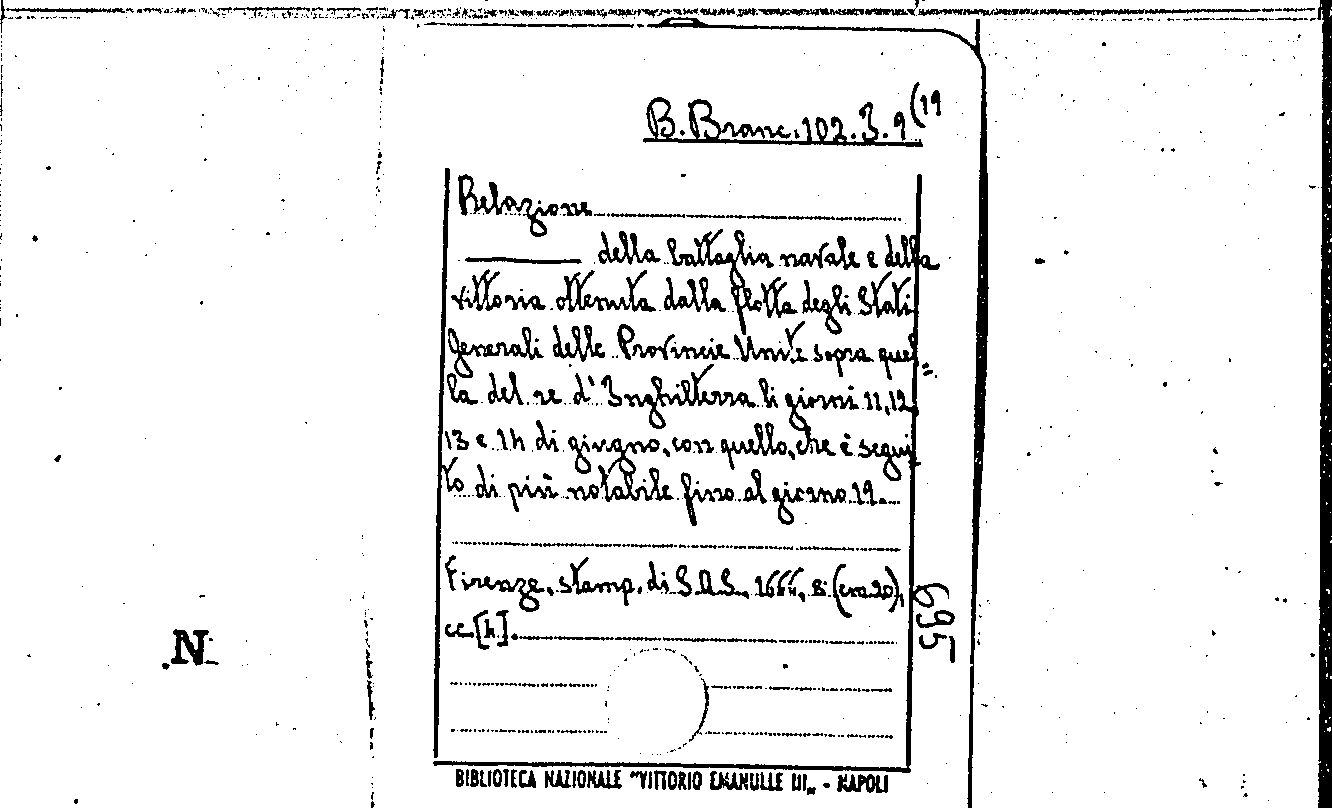 B. Branc. 102.3.9 (19
Relazione
della battaglia navale e della
vittoria ottenuta dalla flotta degli Stati
Generali delle Provincie Unite sopra quel=
la del re d'Inghilterra li giorni 11, 12,
13 e 14 di giugno, con quello, che è segui
to di più notabile fino al giorno 19.
Firenze, stamp. di S.A.S., 1666, 8° (cm 20),
cc. [4].
695
N.
BIBLIOTECA NAZIONALE "VITTORIO EMANULLE III„ - NAPOLI